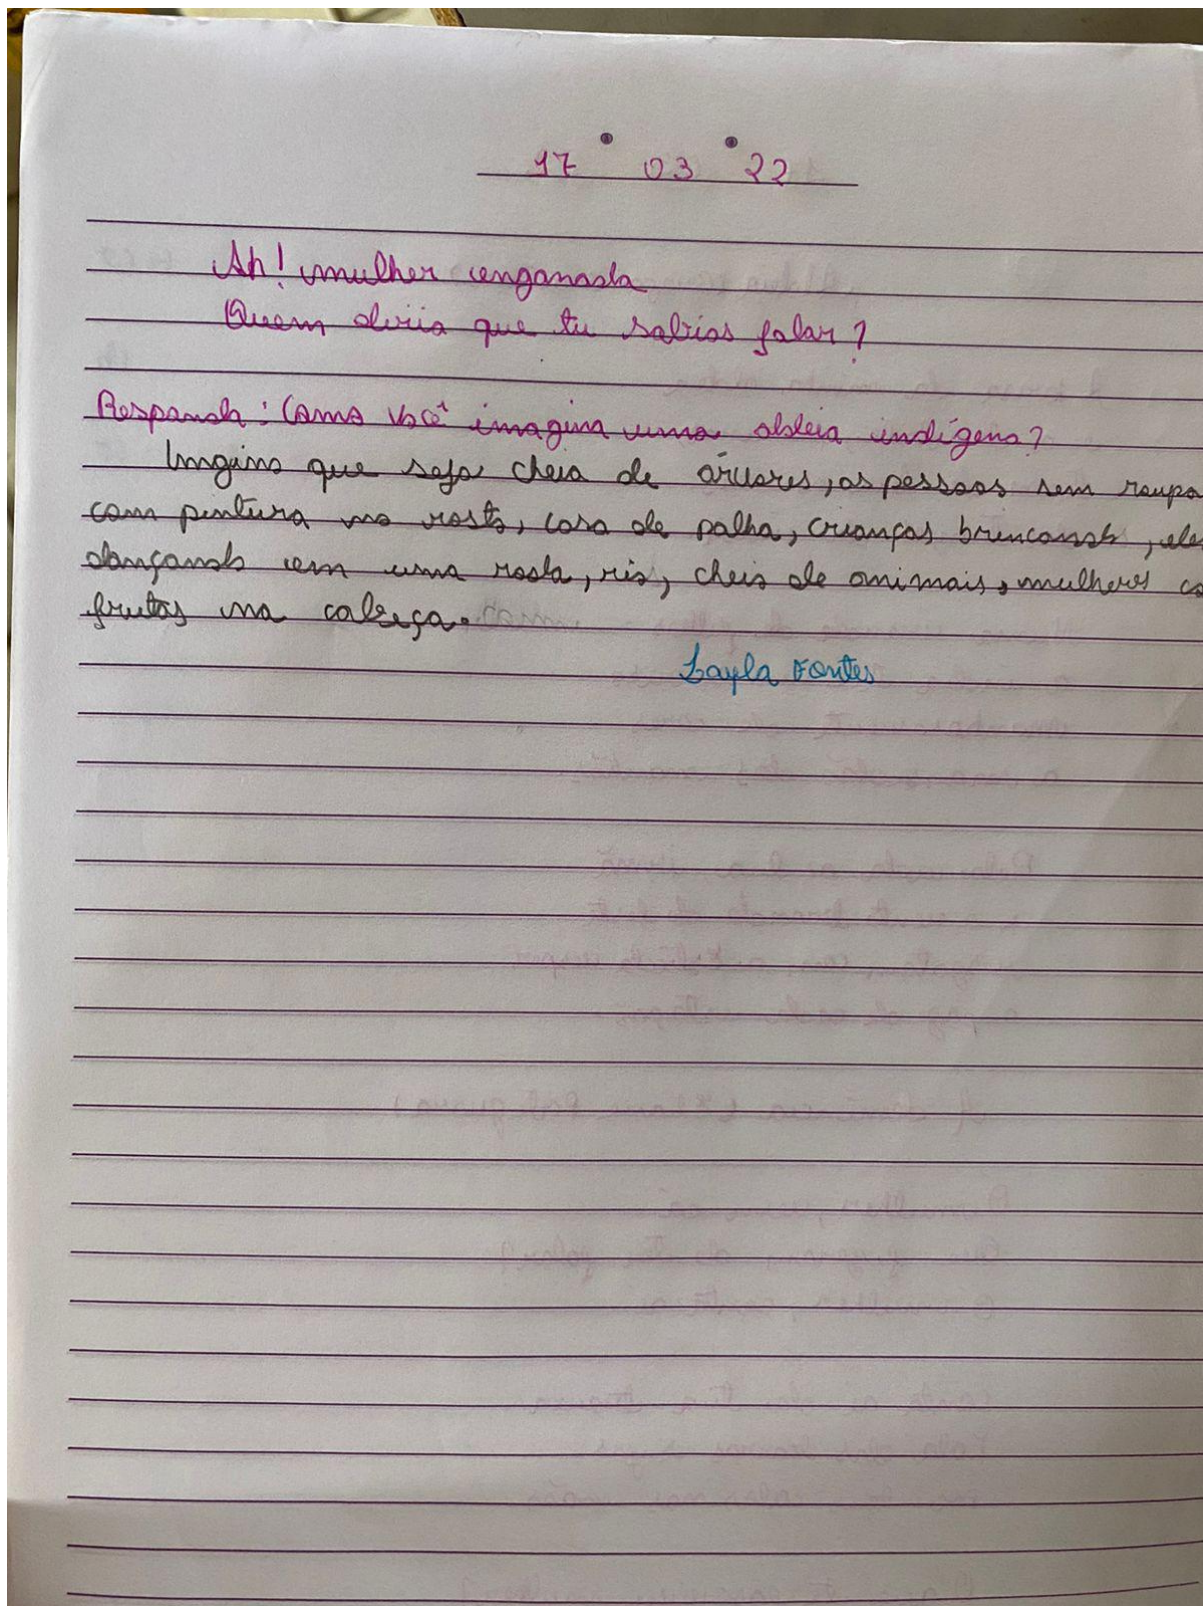 17 . 03 . 22
Ah! mulher enganada
Quem diria que tu sabias falar?
Responda: Como Você imagina uma aldeia indígena?
Imgino que seja cheia de árvores, as pessoas sem roupa
com pintura no rosto, casa de palha, crianças brincando, eles
dançando em uma roda, rio, cheio de animais, mulheres co
frutas na cabeça.
Layla Fontes